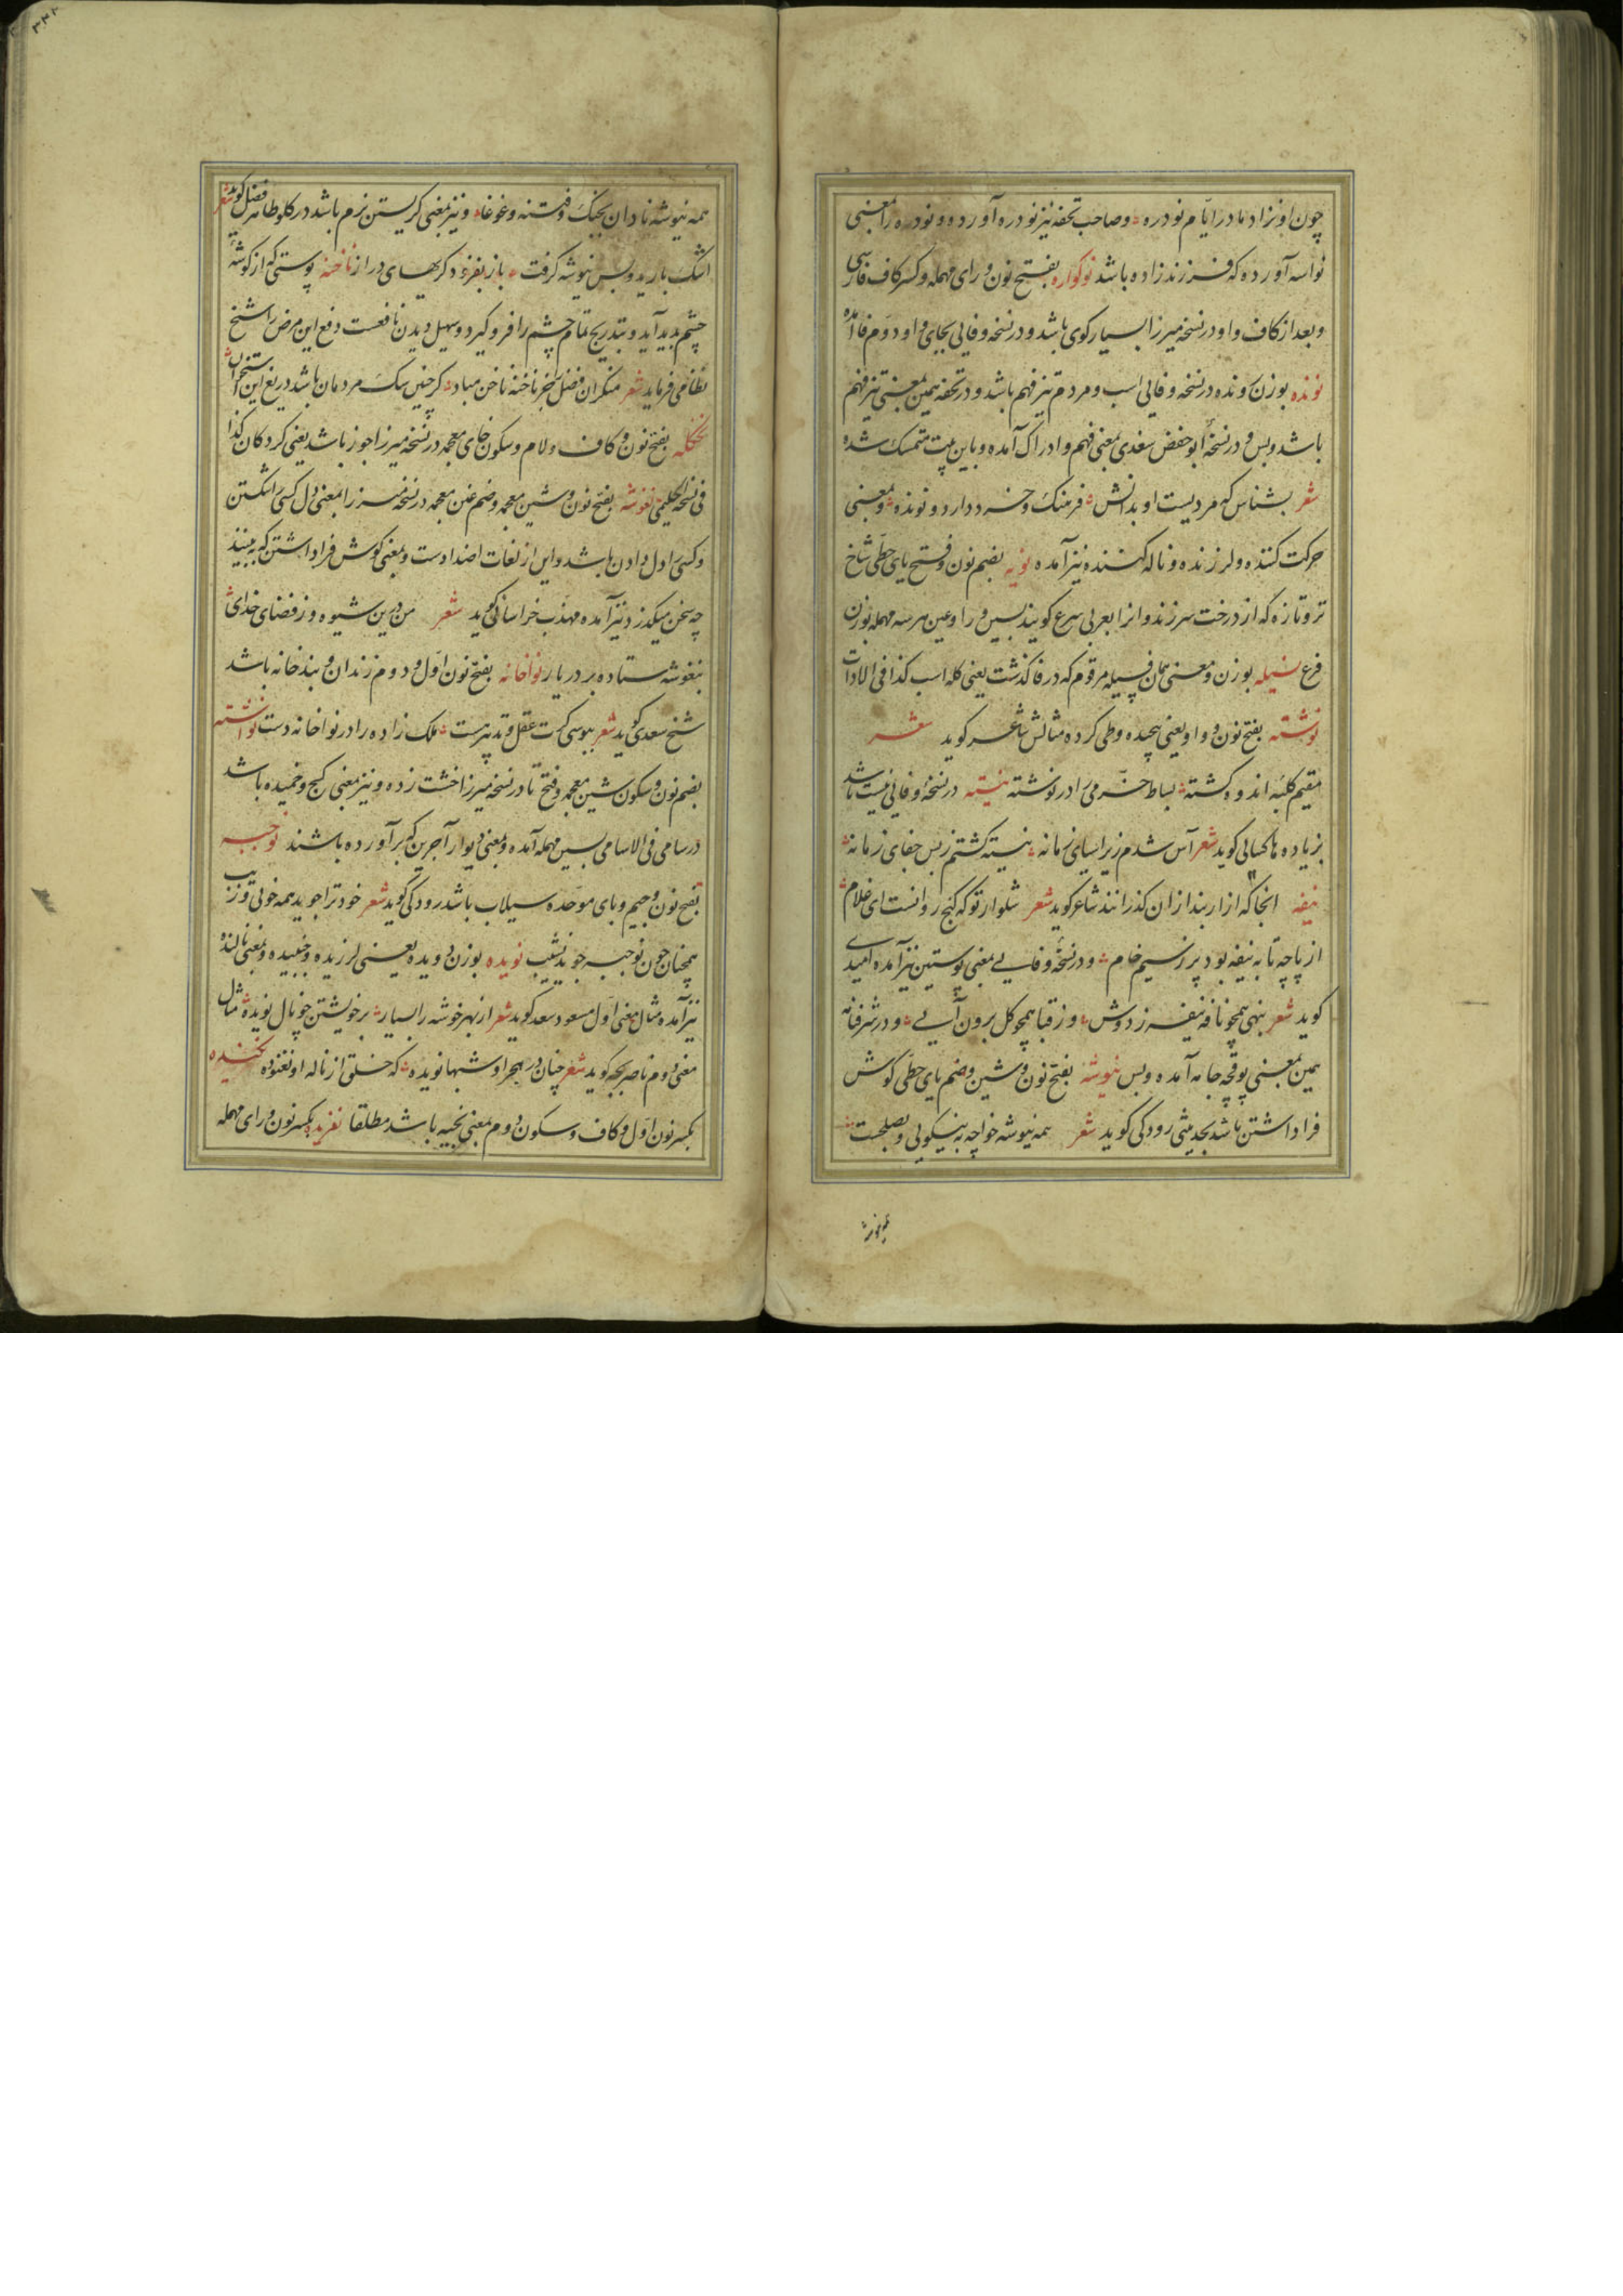 چون او نزاد مادر ایام نودره و صاحب تحفه نیز نودره آورده و نودره را بمعنی
نواسه آورده که فرزند زاده باشد نوکواره بفتح نون و رای مهمله و کسر کاف فارسی
و بعد از کاف واو در نسخه میرزا بسیار کوی باشد و در نسخه وفایی بجای واو دوم فا آمده
نونده بوزن رونده در نسخه وفایی اسب و مردم تیز فهم باشد و در تحفه بهمین معنی تیز فهم
باشد و بس و در نسخهٔ ابو حفض سغدی بمعنی فهم و ادراک آمده و باین بیت متمسک شده
شعر بشناس که مردیست او بدانش فرهنک و خرد دارد و نونده و بمعنی
حرکت کننده و لرزنده و ناله کننده نیز آمده نویه بضم نون و فتح یای حطی شاخ
تر و تازه که از درخت سر زند و انرا بعربی سرع کویند بسین و را و عین هر سه مهمله بوزن
فرع نسیله بوزن و معنی همان فسیله مرقوم که در فا کذشت یعنی کله اسب کذا فی الادات
نوشته بفتح نون و واو یعنی پیچیده و طی کرده مثالش شاعر کوید شعر
مقیم کلبه اندوه کشته بساط خرمی را در نوشته نیسته در نسخه وفایی نیست باشد
بزیاده ها کسایی کوید شعر آس شدم زیر اسیای زمانه نیسته کشتم ز بس جفای زمانه
نیفه انجا که ازار بند از ان کذرانند شاعر کوید شعر شلوار تو که کنج روانست ای غلام
از پاچه تا به نیفه بود پر ز سیم خام و در نسخهٔ وفایی بمعنی پوستین نیز آمده امیدی
کوید شعر بنهی همچو نافه نیفه ز دوش وز قبا همچو کل برون آیی و در شرفنامه
بهمین معنی بوقچه جامه آمده و بس نیوشه بفتح نون و شین و ضم یای حطی کوش
فرا داشتن باشد بحدیثی رودکی کوید شعر همه نیوشه خواجه به نیکویی و بصلحست
همه نیوشه
همه نیوشه نادان بجنک و فتنه و غوغا و نیز بمعنی کریستن نرم باشد در کلو طاهر فضل کوید شعر
اشک بارید و بس نیوشه کرفت باز بفزود کریهای دراز ناخنه پوستی که از کوشهٔ
چشم پدید آید و بتدریج تمام چشم را فرو کیرد و سهیل دیدن نافعست دفع این مرض را شیخ
نظامی فرماید شعر منکران فضل بخر ناخنه ناخن مباد کر چنین سک مردمان باشد دریغ این استخوان
نخکله بفتح نون و کاف و لام و سکون خای معجمه در نسخه میرزا جوز باشد یعنی کردکان کذا
فی نسخة الحلیمی نغوشه بفتح نون و شین معجمه و ضم غین معجمه در نسخه میرزا بمعنی دل کسی اشکستن
و کسی را دل دادن باشد و این از لغات اضدادست و بمعنی کوش فرا داشتن که به بینند
چه سخن میکذرد نیز آمده مهذب خراسانی کوید شعر من درین شیوه و ز قضای خدای
بنغوشه ستاده بر در یار نواخانه بفتح نون اول و دوم زندان و بند خانه باشد
شیخ سعدی کوید شعر ببوسی کت عقل و تدبیرست ملک زاده را در نواخانه دست نواشته
بضم نون و سکون شین معجمه و فتح تا در نسخه میرزا خشت زده و نیز بمعنی کج و خمیده باشد
در سامی فی الاسامی بسین مهمله آمده و بمعنی دیوار آجرین که بر آورده باشند نوجبه
بفتح نون و جیم و بای موحده سیلاب باشد رودکی کوید شعر خود ترا جوید همه خوبی و زیب
همچنان چون نوجبه جوید نشیب نویده بوزن دویده یعنی لرزیده و جنبیده و بمعنی نالنده
نیز آمده مثال معنی اول مسعود سعد کوید شعر از بهر خوشه را بسیار بر خویشتن چو نال نویده مثال
معنی دوم ناصر بجه کوید شعر چنان در هجر او شبها نویده که خلق از ناله او نغنوده نکنیده
بکسر نون اول و کاف و سکون دوم بمعنی بخیه باشد مطلقا نغریده بکسر نون و رای مهمله